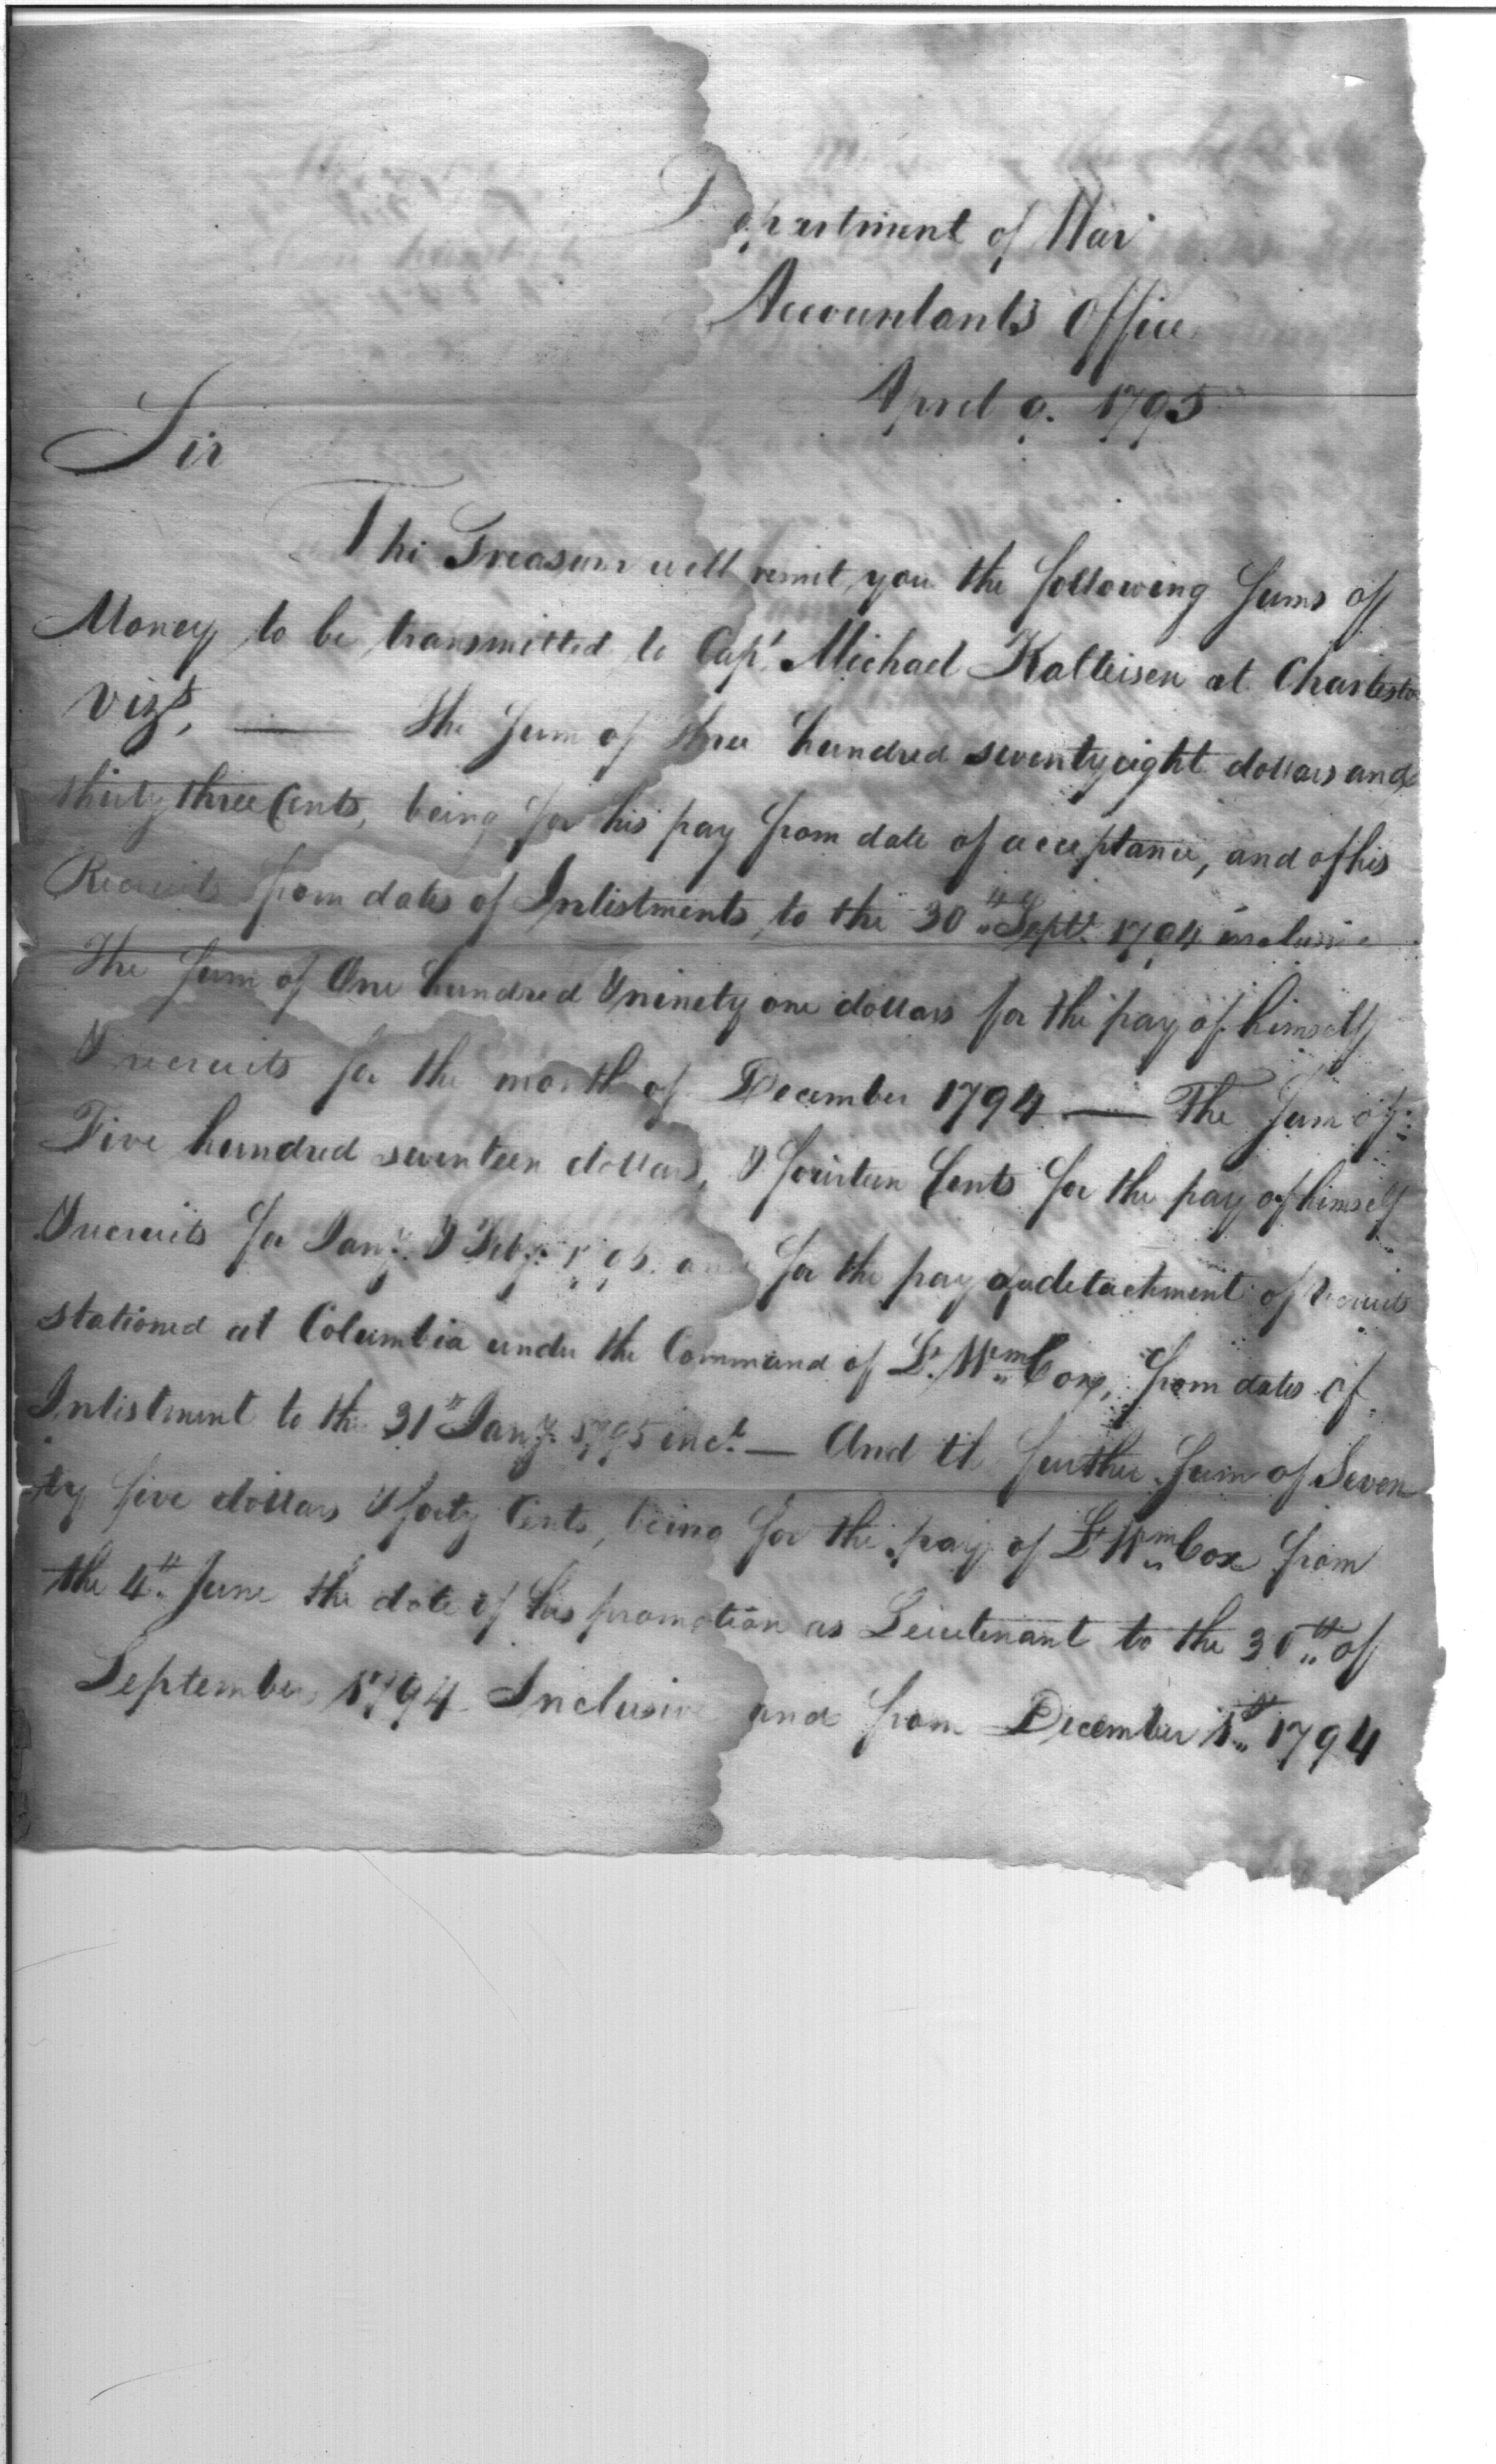 Department of War
Accountants Office
April 9. 1795
Sir
The Treasurer will remit you the following Sums of
Money to be transmitted to Capt. Michael Kalteisen at Charleston
Vizt. — The Sum of three hundred seventy eight dollars and
thirty three Cents, being for his pay from date of acceptance, and of his
Recruits from dates of Inlistments, to the 30th Septr. 1794 inclusive
The Sum of One hundred & ninety one dollars for the pay of himself
& recruits for the month of December 1794 — The Sum of
Five hundred seventeen dollars, & fourteen Cents for the pay of himself
& recruits for Jany. & Feby. 1795. and for the pay of a detachment of recruits
stationed at Columbia under the Command of Lt. Wm Cox, from dates of
Inlistment to the 31st Jany. 1795 incl. — And the further Sum of Seven
ty five dollars & forty Cents, being for the pay of Lt Wm Cox from
the 4th. June the date of his promotion as Leiutenant to the 30th of
September 1794 Inclusive and from December 1st 1794